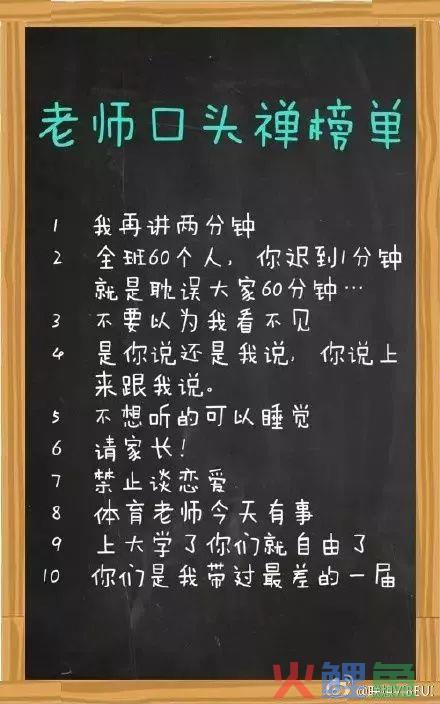 老师口头禅榜单
1 我再讲两分钟
2 全班60个人，你迟到1分钟
就是耽误大家60分钟…
3 不要以为我看不见
4 是你说还是我说，你说上
来跟我说。
5 不想听的可以睡觉
6 请家长！
7 禁止谈恋爱
8 体育老师今天有事
9 上大学了你们就自由了
10 你们是我带过最差的一届
火鲤鱼